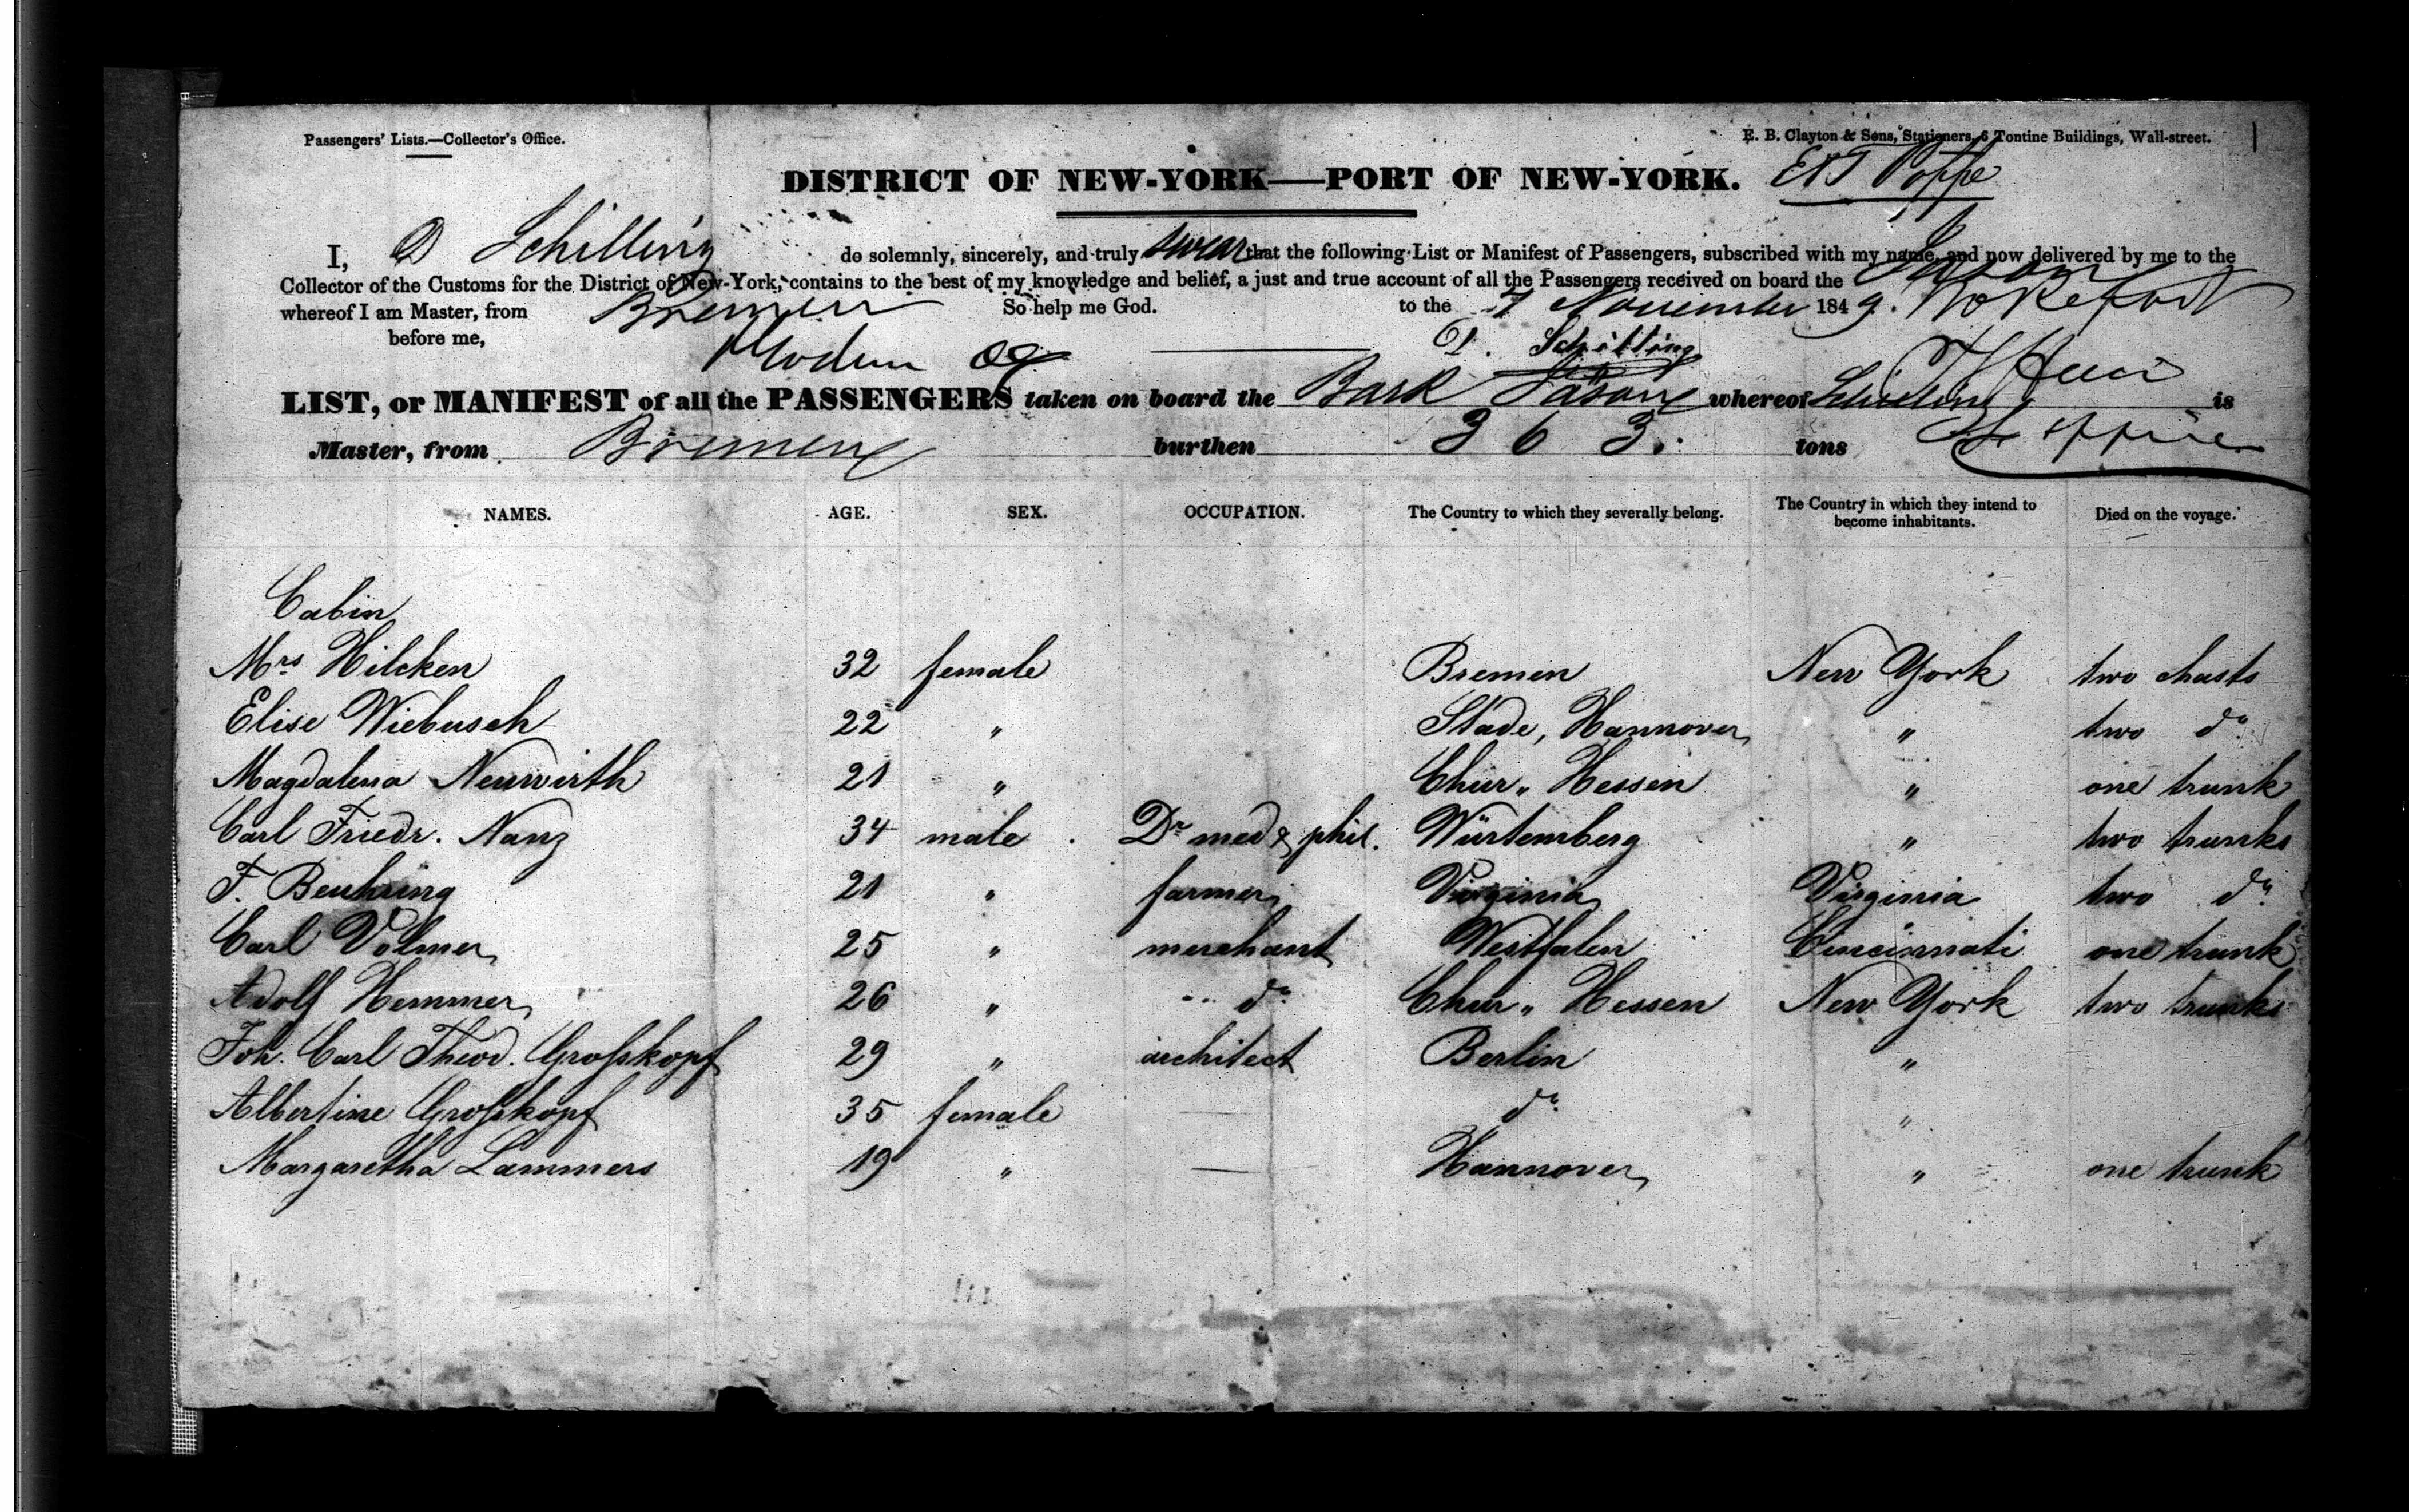 Passengers' Lists.—Collector's Office.
E. B. Clayton & Sons, Stationers, 6 Tontine Buildings, Wall-street.
DISTRICT OF NEW-YORK—PORT OF NEW-YORK. Poppe
I, D Schilling do solemnly, sincerely, and truly swear that the following List or Manifest of Passengers, subscribed with my name, and now delivered by me to the
Collector of the Customs for the District of New-York, contains to the best of my knowledge and belief, a just and true account of all the Passengers received on board the Jason
whereof I am Master, from Bremen So help me God. to the 7 November 1849.
before me, D. Schilling
LIST, or MANIFEST of all the PASSENGERS taken on board the Bark Jason whereof Schilling is
Master, from Bremen burthen 363. tons
NAMES. AGE. SEX. OCCUPATION. The Country to which they severally belong. The Country in which they intend to become inhabitants. Died on the voyage.
Cabin
Mrs Hilcken 32 female Bremen New York two chests
Elise Wiebusch 22 " Stade, Hannover " two do.
Magdalena Neuwirth 21 " Chur „ Hessen " one trunk
Carl Friedr. Nanz 34 male Dr med & phil. Würtemberg " two trunks
F. Beuhring 21 " farmer Virginia Virginia two do.
Carl Volmer 25 " merchant Westfalen Cincinnati one trunk
Adolf Hemmer 26 " do. Chur „ Hessen New York two trunks
Joh. Carl Theod. Groſskopf 29 " architect Berlin "
Albertine Groſskopf 35 female — do. "
Margaretha Lammers 19 " — Hannover " one trunk